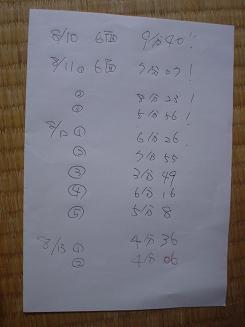 8/10 6面 9分40!
8/11① 6面 7分07!
② 8分23!
③ 5分56!
8/12 ① 6分26
② 5分55
③ 3分49
④ 6分16
⑤ 5分8
8/13 ① 4分36
② 4分06